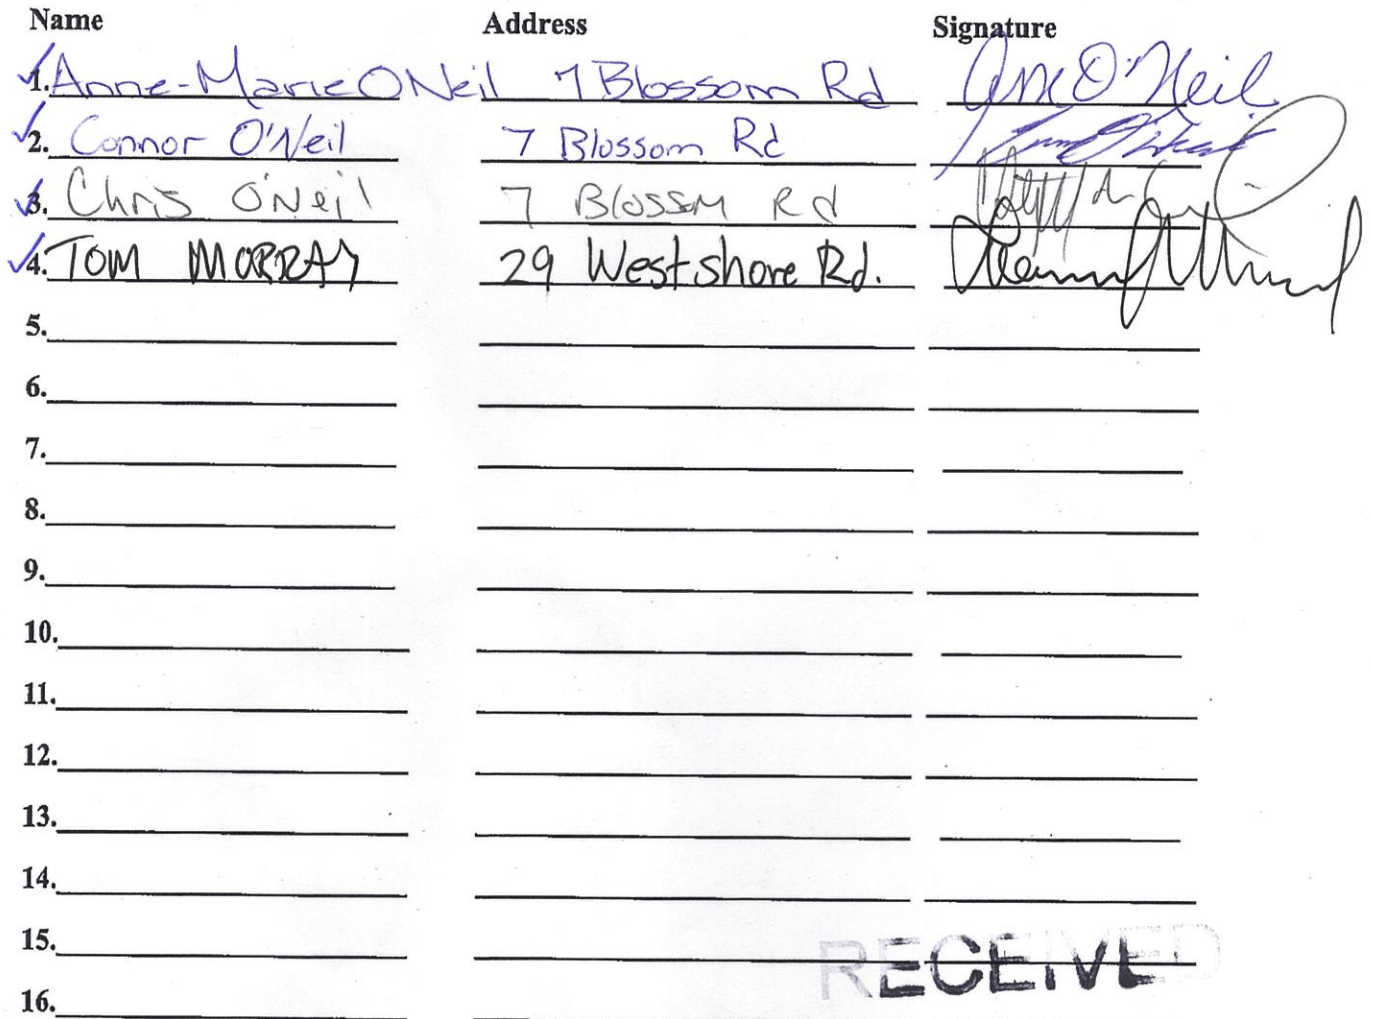 Name Address Signature
1. Anne-Marie ONeil 7 Blossom Rd
2. Connor O'Neil 7 Blossom Rd
3. Chris O'Neil 7 Blossm Rd
4. TOM MURRAY 29 Westshore Rd.
5.
6.
7.
8.
9.
10.
11.
12.
13.
14.
15.
RECEIVED
16.